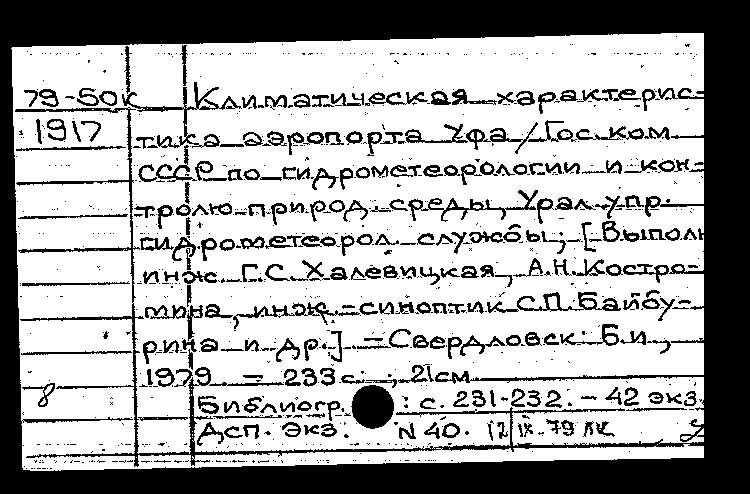 79-50к Климатическая характерис-
1917 тика аэропорта Уфа / Гос. ком.
СССР по гидрометеорологии и кон-
тролю природ. среды, Урал. упр.
гидрометеорол. службы; [Выполн
инж. Г.С. Халевицкая, А.Н. Костро-
мина, инж.-синоптик С.П. Байбу-
рина и др.] - Свердловск: Б.и.,
1979. - 233 с. ; 21 см
8 Библиогр.: с. 231-232. - 42 экз.
Дсп. экз. N 40. 12 IX-79